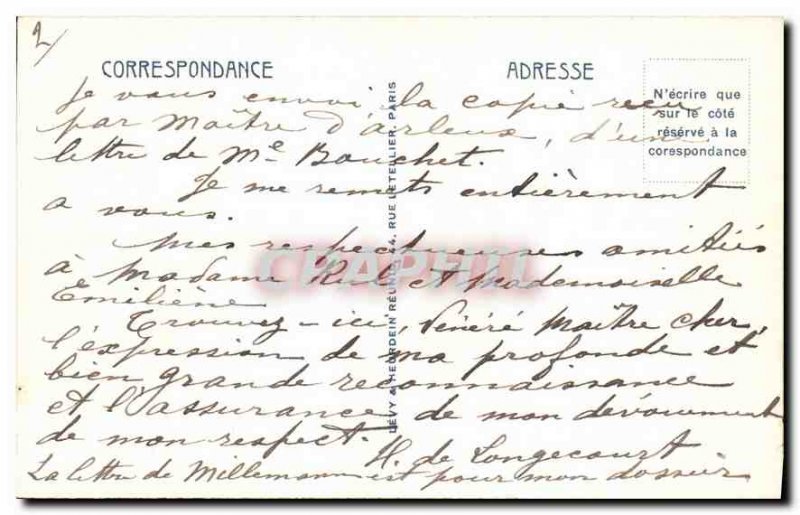 2)
CORRESPONDANCE
ADRESSE
N'écrire que
sur le côté
réservé à la
corespondance
Je vous envoi la copie reçu
par Maître d'Arleux, d'une
lettre de Me Bouchet.
Je me remets entièrement
a vous.
Mes respectueuses amitiés
à Madame et Mademoiselle
Emiliène
Trouvez-ici, Vénéré Maître cher,
l'expression de ma profonde et
bien grande reconnaissance
et l'assurance de mon dévouement
de mon respect.
H. de Longecourt
La lettre de Millemann est pour mon dossier
LÉVY & NEURDEIN RÉUNIS, 44, RUE LETELLIER, PARIS
CPAPHIL